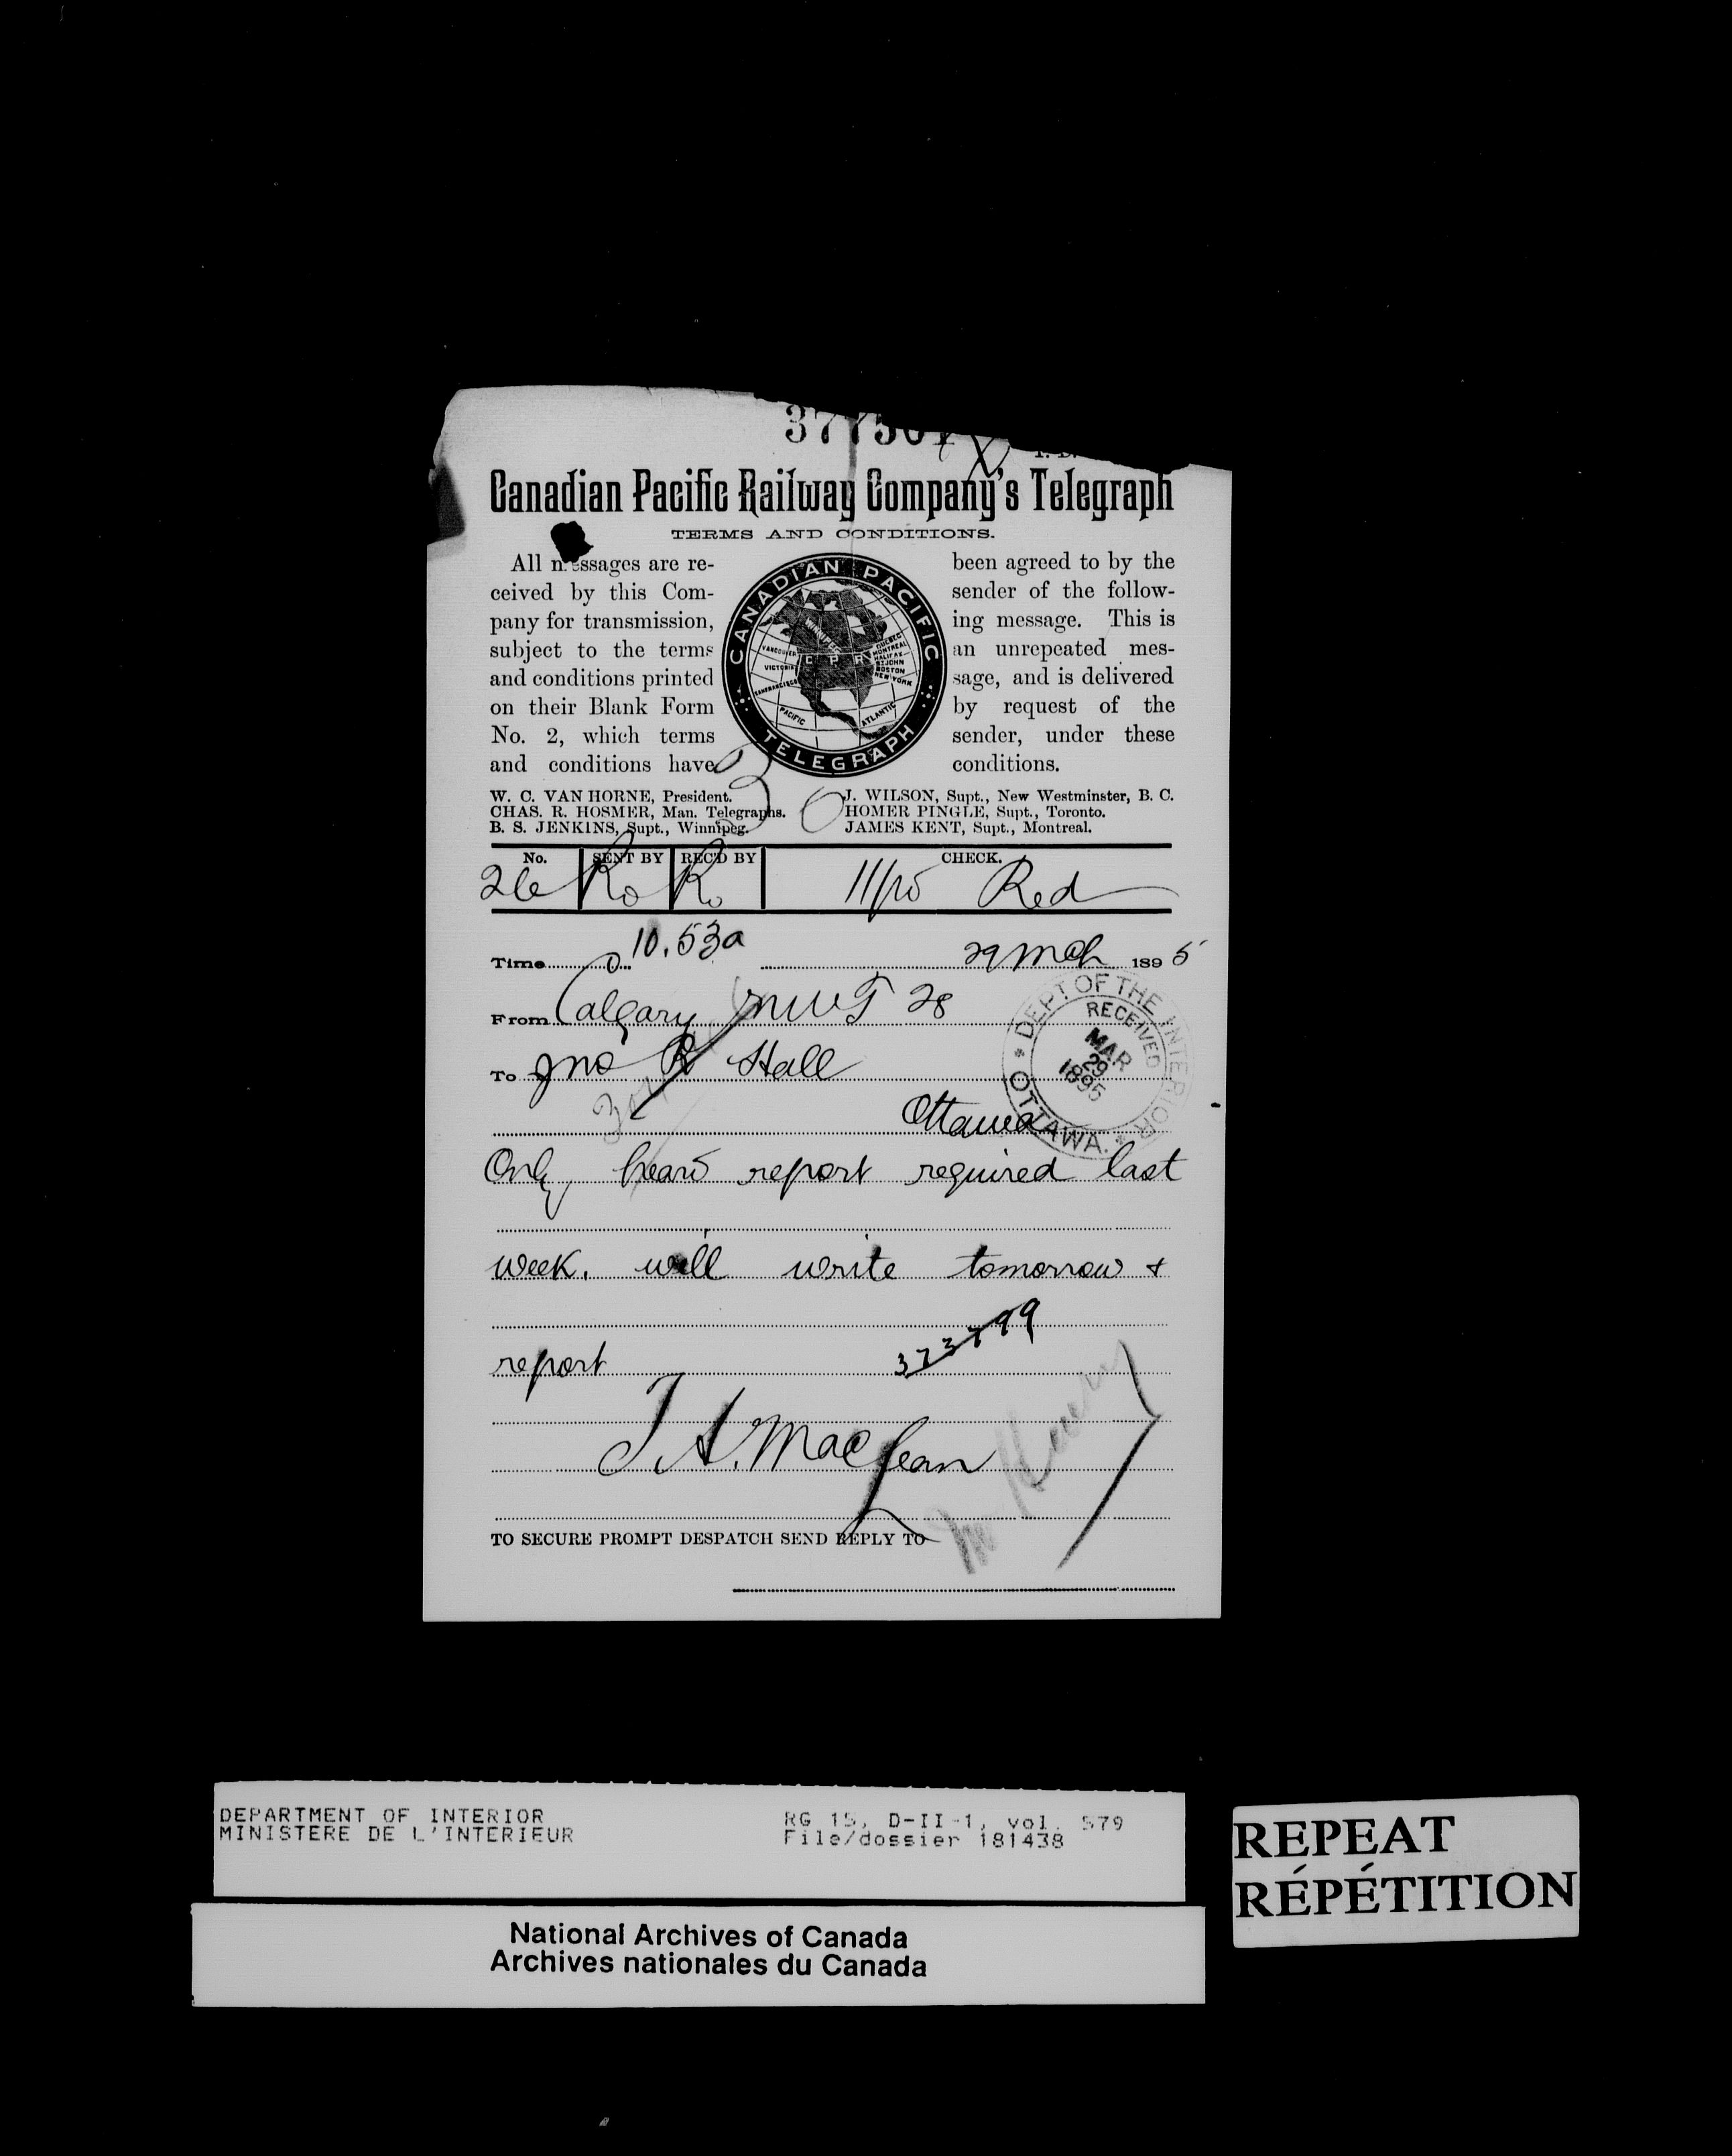 Canadian Pacific Railway Company's Telegraph
TERMS AND CONDITIONS.
All messages are re-
ceived by this Com-
pany for transmission,
subject to the terms
and conditions printed
on their Blank Form
No. 2, which terms
and conditions have
CANADIAN PACIFIC
WINNIPEG
VANCOUVER
VICTORIA
SANFRANCISCO
C P R
QUEBEC
MONTREAL
HALIFAX
ST JOHN
BOSTON
NEW YORK
PACIFIC
ATLANTIC
TELEGRAPH
been agreed to by the
sender of the follow-
ing message. This is
an unrepeated mes-
sage, and is delivered
by request of the
sender, under these
conditions.
W. C. VAN HORNE, President.
CHAS. R. HOSMER, Man. Telegraphs.
B. S. JENKINS, Supt., Winnipeg.
J. WILSON, Supt., New Westminster, B. C.
HOMER PINGLE, Supt., Toronto.
JAMES KENT, Supt., Montreal.
No. SENT BY REC'D BY CHECK.
26 Ro Ro Red
Time 10.53a 29 Mch 1895
From Calgary NWT 28
To Jno R Hall
Ottawa
DEPT OF THE INTERIOR
RECEIVED
MAR
29
1895
OTTAWA.
Only heard report required last
week. will write tomorrow &
report
373799
T. A. MacLean
TO SECURE PROMPT DESPATCH SEND REPLY TO
DEPARTMENT OF INTERIOR
MINISTERE DE L'INTERIEUR
RG 15, D-II-1, vol. 579
File/dossier 181438
National Archives of Canada
Archives nationales du Canada
REPEAT
RÉPÉTITION